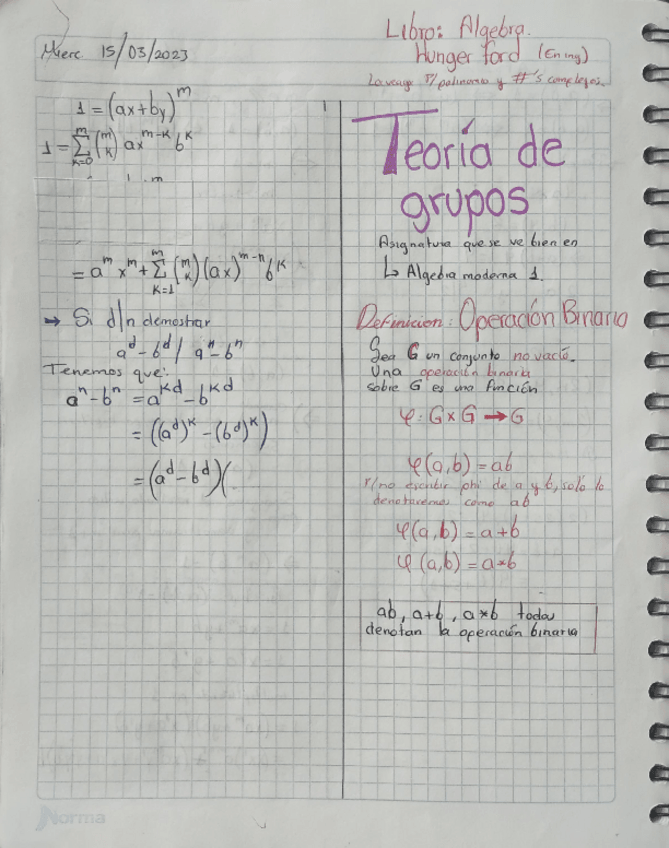 Mierc 15/03/2023
Libro: Algebra.
Hunger ford (En ing)
1 = (ax+by)^m
1 = \sum_{k=0}^{m} \binom{m}{k} ax^{m-k} b^k
1 m
= a^m x^m + \sum_{k=1}^{m} \binom{m}{k} (ax)^{m-n} b^k
→ Si d|n demostrar
a^d - b^d / a^n - b^n
Tenemos que:
a^n - b^n = a^{kd} - b^{kd}
= ((a^d)^k - (b^d)^k)
= (a^d - b^d)(
1
P/polinomio y #'s complejos.
Teoría de
grupos
Asignatura que se ve bien en
↳ Algebra moderna 1.
Definicion: Operación Binario
Sea G un conjunto no vacío.
Una operación binaria
sobre G es una función
φ: G×G → G
φ(a,b) = ab
P/no escribir phi de a y b, solo lo
denotaremos como ab
φ(a,b) = a+b
φ(a,b) = a*b
ab, a+b, a*b todas
denotan la operación binaria
Norma